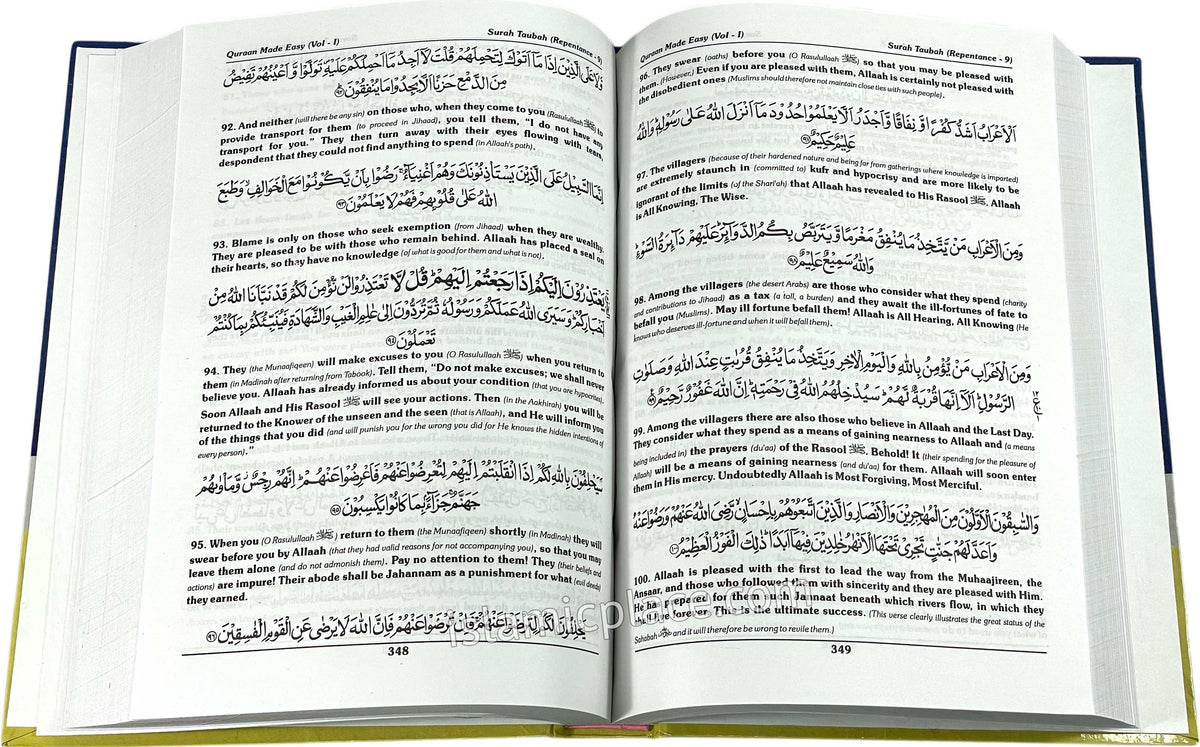 Quraan Made Easy (Vol - I) Surah Taubah (Repentance - 9)
وَّلَا عَلَى الَّذِيْنَ اِذَا مَآ اَتَوْكَ لِتَحْمِلَهُمْ قُلْتَ لَآ اَجِدُ مَآ اَحْمِلُكُمْ عَلَيْهِ تَوَلَّوْا وَّاَعْيُنُهُمْ تَفِيْضُ
مِنَ الدَّمْعِ حَزَنًا اَلَّا يَجِدُوْا مَا يُنْفِقُوْنَ ﴿٩٢﴾
92. And neither (will there be any sin) on those who, when they come to you (Rasulullaah ﷺ) to
provide transport for them (to proceed in Jihaad), you tell them, "I do not have any
transport for you." They then turn away with their eyes flowing with tears,
despondent that they could not find anything to spend (in Allaah's path).
اِنَّمَا السَّبِيْلُ عَلَى الَّذِيْنَ يَسْتَاْذِنُوْنَكَ وَهُمْ اَغْنِيَآءُ ۚ رَضُوْا بِاَنْ يَّكُوْنُوْا مَعَ الْخَوَالِفِ ۙ وَطَبَعَ
اللّٰهُ عَلٰى قُلُوْبِهِمْ فَهُمْ لَا يَعْلَمُوْنَ ﴿٩٣﴾
93. Blame is only on those who seek exemption (from Jihaad) when they are wealthy.
They are pleased to be with those who remain behind. Allaah has placed a seal on
their hearts, so they have no knowledge (of what is good for them and what is not).
يَعْتَذِرُوْنَ اِلَيْكُمْ اِذَا رَجَعْتُمْ اِلَيْهِمْ ؕ قُلْ لَّا تَعْتَذِرُوْا لَنْ نُّؤْمِنَ لَكُمْ قَدْ نَبَّاَنَا اللّٰهُ مِنْ
اَخْبَارِكُمْ ؕ وَسَيَرَى اللّٰهُ عَمَلَكُمْ وَرَسُوْلُهٗ ثُمَّ تُرَدُّوْنَ اِلٰى عٰلِمِ الْغَيْبِ وَالشَّهَادَةِ فَيُنَبِّئُكُمْ بِمَا كُنْتُمْ
تَعْمَلُوْنَ ﴿٩٤﴾
94. They (the Munaafiqeen) will make excuses to you (O Rasulullaah ﷺ) when you return to
them (in Madinah after returning from Tabook). Tell them, "Do not make excuses; we shall never
believe you. Allaah has already informed us about your condition (that you are hypocrites).
Soon Allaah and His Rasool ﷺ will see your actions. Then (in the Aakhirah) you will be
returned to the Knower of the unseen and the seen (that is Allaah), and He will inform you
of the things that you did (and will punish you for the wrong you did for He knows the hidden intentions of
every person)."
سَيَحْلِفُوْنَ بِاللّٰهِ لَكُمْ اِذَا انْقَلَبْتُمْ اِلَيْهِمْ لِتُعْرِضُوْا عَنْهُمْ ؕ فَاَعْرِضُوْا عَنْهُمْ ؕ اِنَّهُمْ رِجْسٌ ۫ وَّمَاْوٰىهُمْ
جَهَنَّمُ ۚ جَزَآءًۢ بِمَا كَانُوْا يَكْسِبُوْنَ ﴿٩٥﴾
95. When you (O Rasulullaah ﷺ) return to them (the Munaafiqeen) shortly (in Madinah) they will
swear before you by Allaah (that they had valid reasons for not accompanying you), so that you may
leave them alone (and do not admonish them). Pay no attention to them! They (their beliefs and
actions) are impure! Their abode shall be Jahannam as a punishment for what (evil deeds)
they earned.
يَحْلِفُوْنَ لَكُمْ لِتَرْضَوْا عَنْهُمْ ۚ فَاِنْ تَرْضَوْا عَنْهُمْ فَاِنَّ اللّٰهَ لَا يَرْضٰى عَنِ الْقَوْمِ الْفٰسِقِيْنَ ﴿٩٦﴾
348
Quraan Made Easy (Vol - I) Surah Taubah (Repentance - 9)
96. They swear (oaths) before you (O Rasulullaah ﷺ) so that you may be pleased with
them. (However,) Even if you are pleased with them, Allaah is certainly not pleased with
the disobedient ones (Muslims should therefore not maintain close ties with such people).
اَلْاَعْرَابُ اَشَدُّ كُفْرًا وَّنِفَاقًا وَّاَجْدَرُ اَلَّا يَعْلَمُوْا حُدُوْدَ مَآ اَنْزَلَ اللّٰهُ عَلٰى رَسُوْلِهٖ ؕ وَاللّٰهُ
عَلِيْمٌ حَكِيْمٌ ﴿٩٧﴾
97. The villagers (because of their hardened nature and being far from gatherings where knowledge is imparted)
are extremely staunch in (committed to) kufr and hypocrisy and are more likely to be
ignorant of the limits (of the Shari'ah) that Allaah has revealed to His Rasool ﷺ. Allaah
is All Knowing, The Wise.
وَمِنَ الْاَعْرَابِ مَنْ يَّتَّخِذُ مَا يُنْفِقُ مَغْرَمًا وَّيَتَرَبَّصُ بِكُمُ الدَّوَآئِرَ ؕ عَلَيْهِمْ دَآئِرَةُ السَّوْءِ ؕ
وَاللّٰهُ سَمِيْعٌ عَلِيْمٌ ﴿٩٨﴾
98. Among the villagers (the desert Arabs) are those who consider what they spend (charity
and contributions to Jihaad) as a tax (a toll, a burden) and they await the ill-fortunes of fate to
befall you (Muslims). May ill fortune befall them! Allaah is All Hearing, All Knowing (He
knows who deserves ill-fortune and when it will befall them).
وَمِنَ الْاَعْرَابِ مَنْ يُّؤْمِنُ بِاللّٰهِ وَالْيَوْمِ الْاٰخِرِ وَيَتَّخِذُ مَا يُنْفِقُ قُرُبٰتٍ عِنْدَ اللّٰهِ وَصَلَوٰتِ
الرَّسُوْلِ ؕ اَلَآ اِنَّهَا قُرْبَةٌ لَّهُمْ ؕ سَيُدْخِلُهُمُ اللّٰهُ فِيْ رَحْمَتِهٖ ؕ اِنَّ اللّٰهَ غَفُوْرٌ رَّحِيْمٌ ﴿٩٩﴾
99. Among the villagers there are also those who believe in Allaah and the Last Day.
They consider what they spend as a means of gaining nearness to Allaah and (a means
being included in) the prayers (du'aa) of the Rasool ﷺ. Behold! It (their spending for the pleasure of
Allaah) will be a means of gaining nearness (and du'aa) for them. Allaah will soon enter
them in His mercy. Undoubtedly Allaah is Most Forgiving, Most Merciful.
وَالسّٰبِقُوْنَ الْاَوَّلُوْنَ مِنَ الْمُهٰجِرِيْنَ وَالْاَنْصَارِ وَالَّذِيْنَ اتَّبَعُوْهُمْ بِاِحْسَانٍ ۙ رَّضِيَ اللّٰهُ عَنْهُمْ وَرَضُوْا عَنْهُ
وَاَعَدَّ لَهُمْ جَنّٰتٍ تَجْرِيْ تَحْتَهَا الْاَنْهٰرُ خٰلِدِيْنَ فِيْهَآ اَبَدًا ؕ ذٰلِكَ الْفَوْزُ الْعَظِيْمُ ﴿١٠٠﴾
100. Allaah is pleased with the first to lead the way from the Muhaajireen, the
Ansaar, and those who followed them with sincerity and they are pleased with Him.
He has prepared for them such Jannaat beneath which rivers flow, in which they
shall live forever. This is the ultimate success. (This verse clearly illustrates the great status of the
Sahabah and it will therefore be wrong to revile them.)
349
islamicplace.com